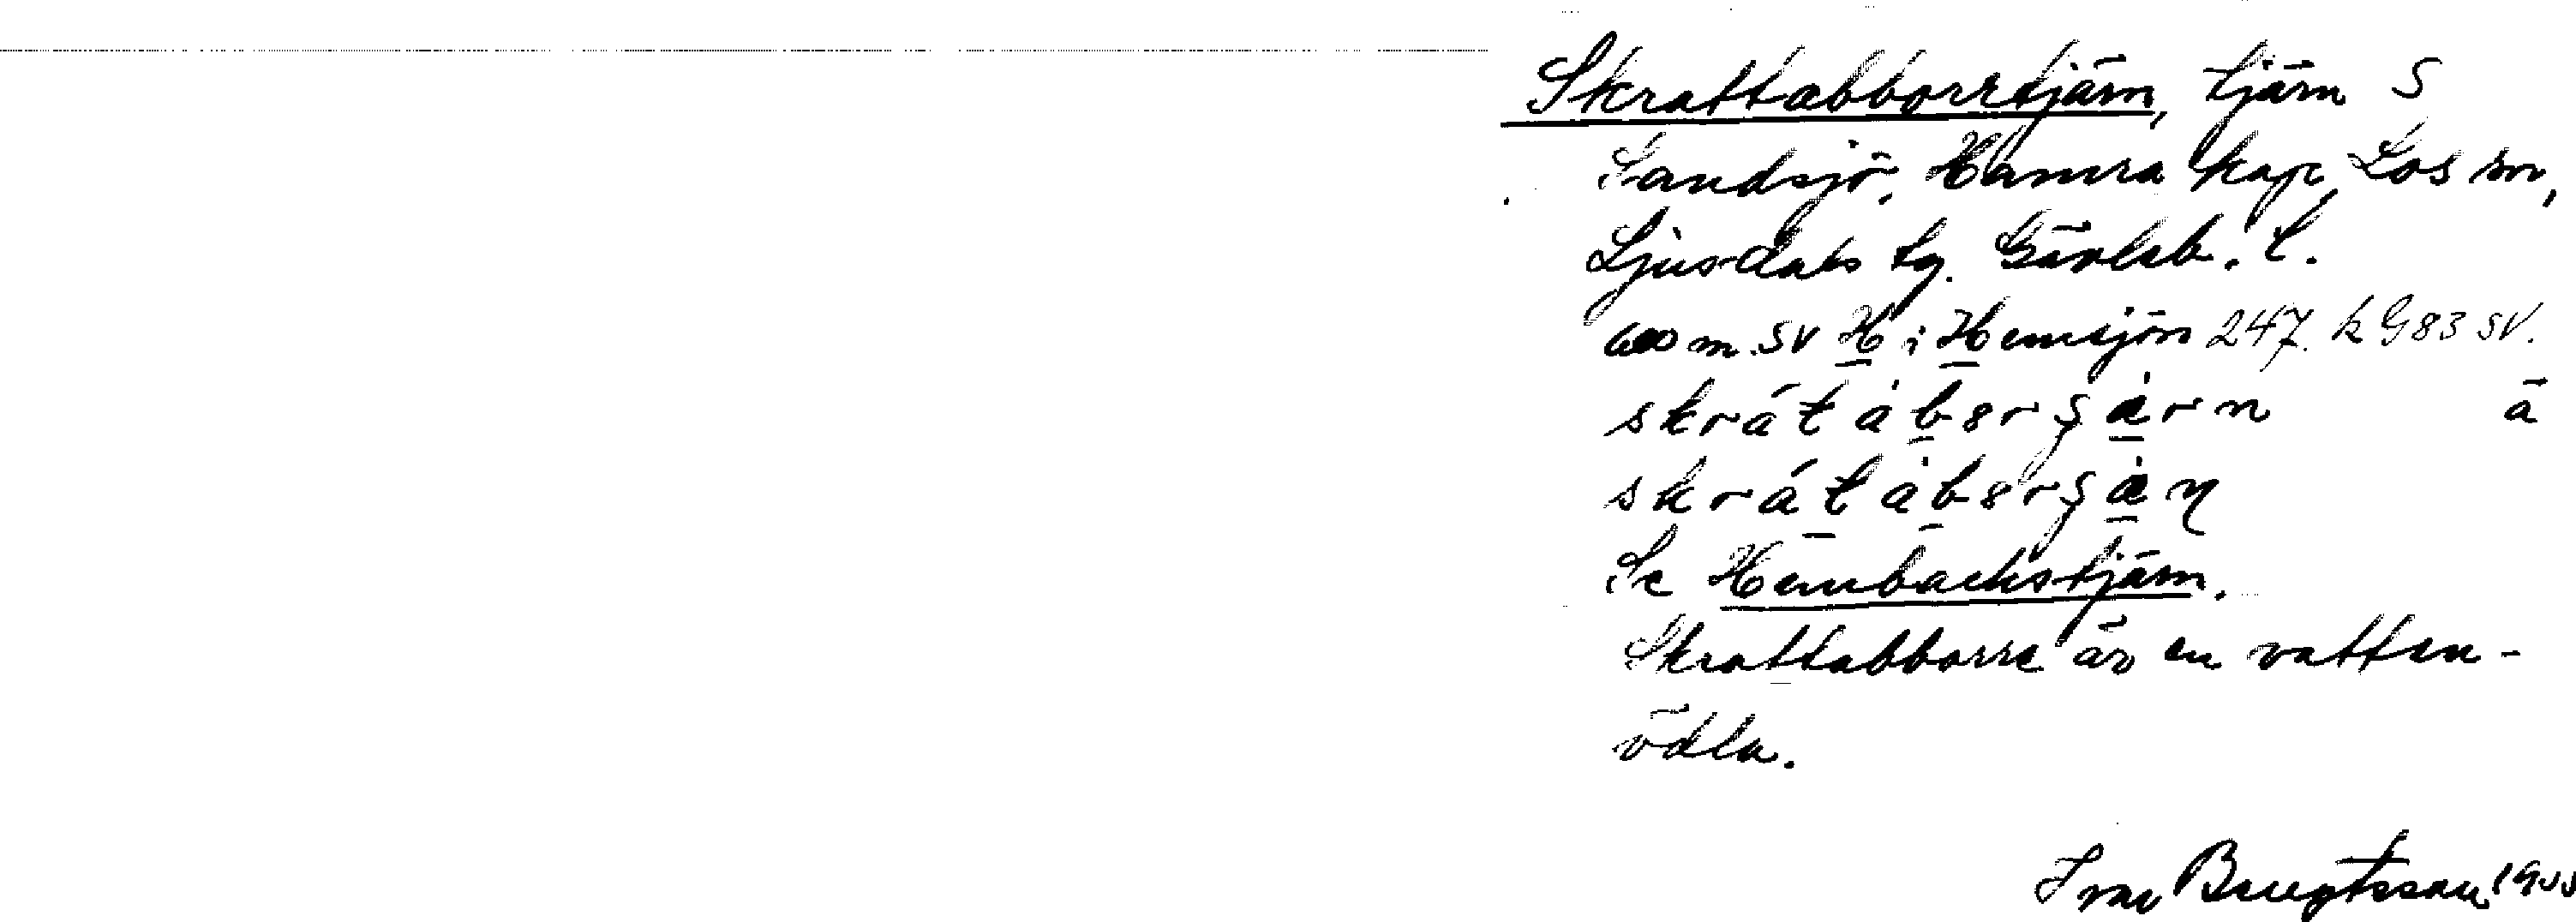 Skrattabborrtjärn, tjärn S
Sandsjö, Hamra kap, Los sn,
Ljusdals tg. Gävleb. l.
600 m SV H i Hemsjön 247. k G83 SV.
skrátabərʂärn ä
skrátabərʂän
Se Hembackstjärn.
Skrattabborre är en vatten-
ödla.
Bengtsson